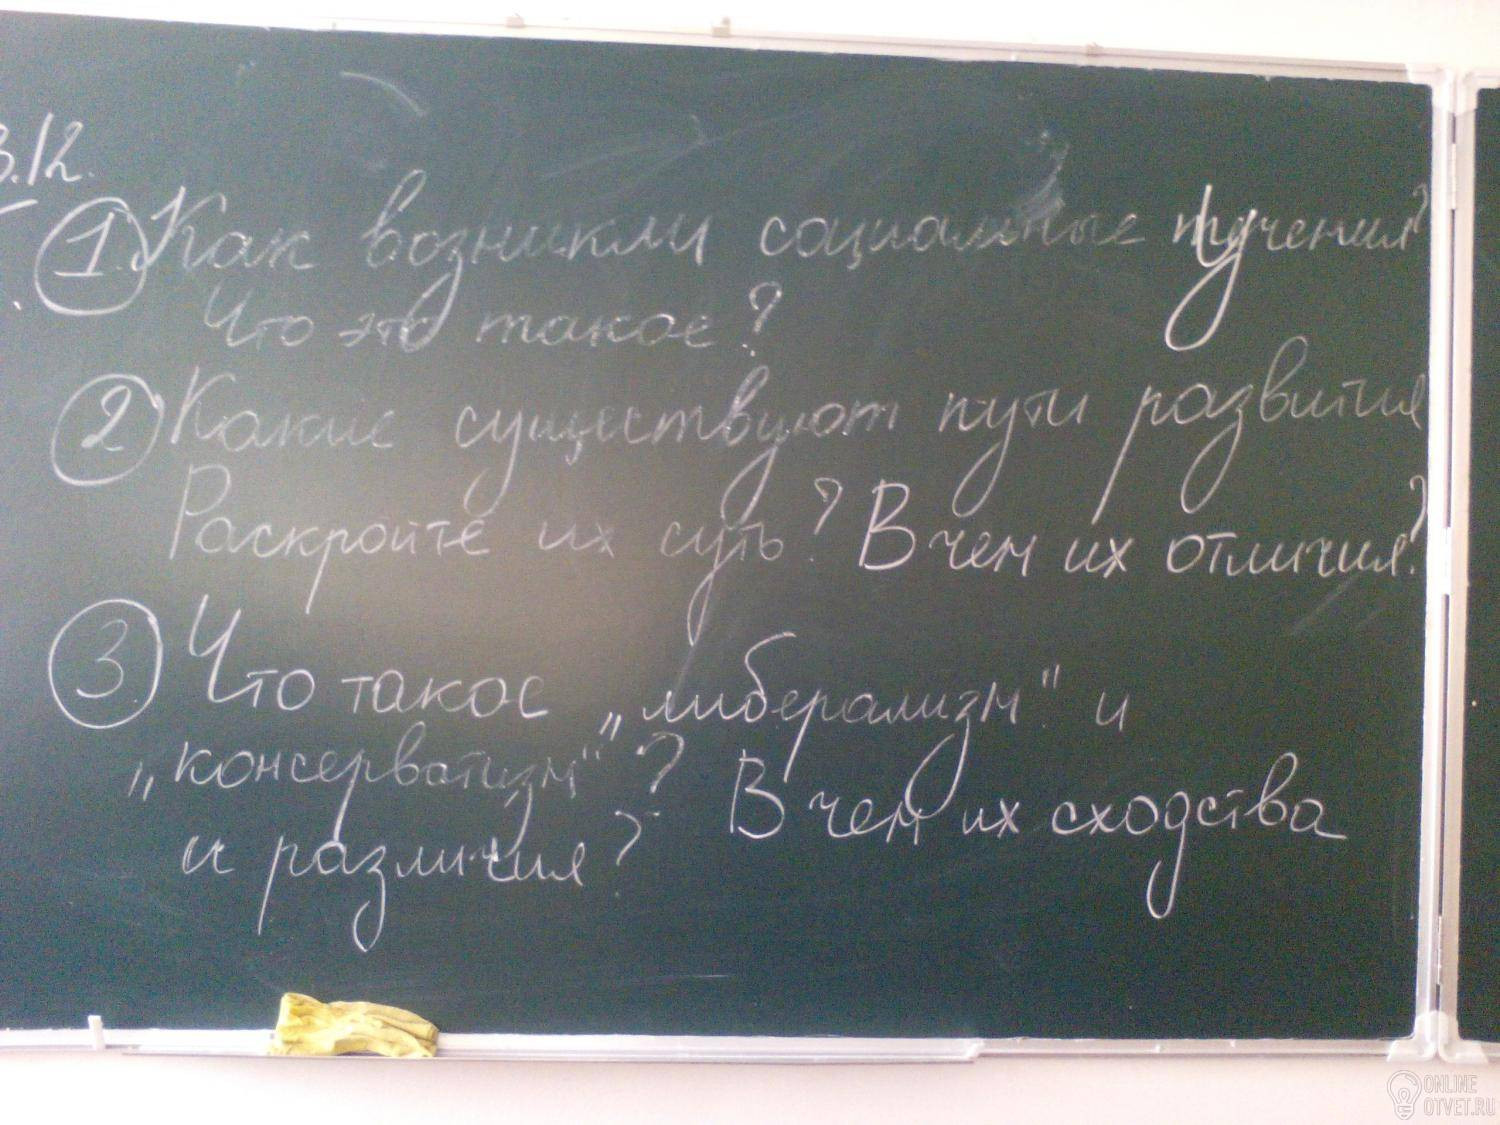 3.12.
1. Как возникли социальные учения?
Что это такое?
2 Какие существуют пути развития
Раскройте их суть? В чем их отличия?
3 Что такое „либерализм" и
„консерватизм"? В чем их сходства
и различия?
ONLINE
OTVET.RU